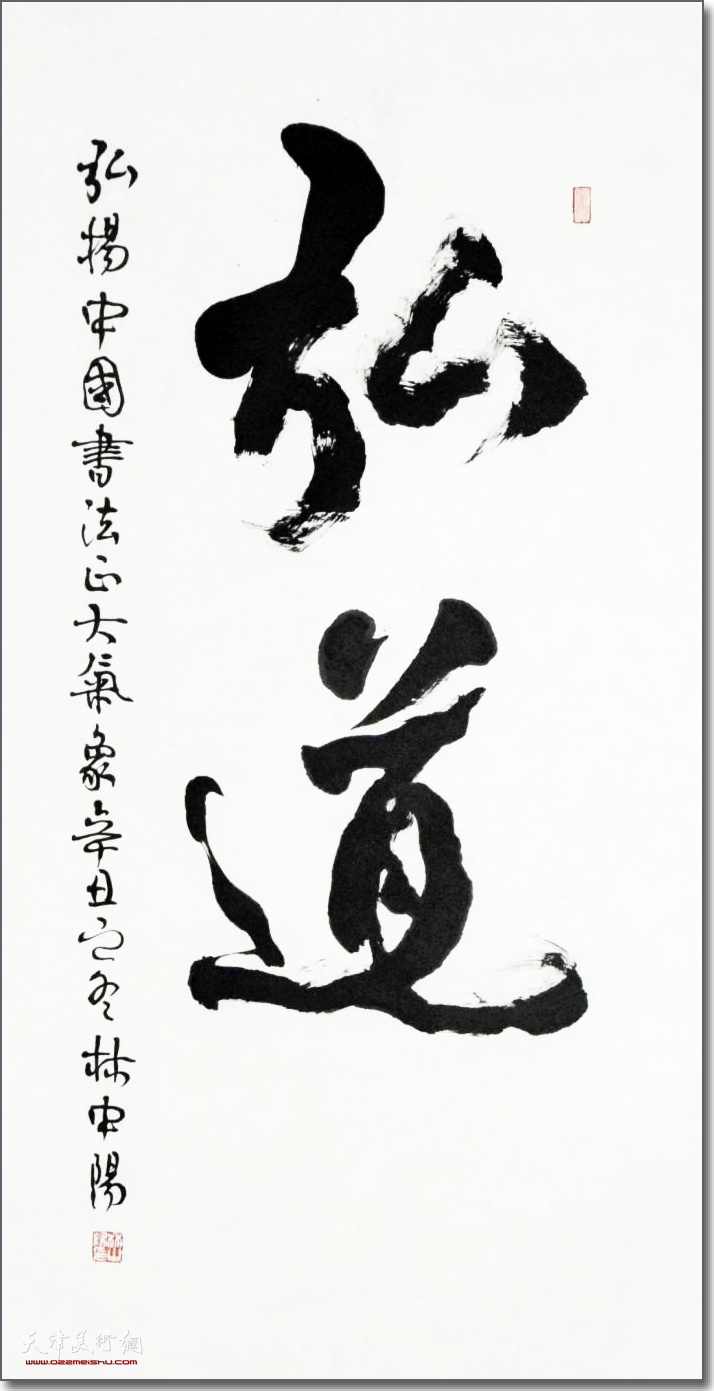 弘道
弘揚中國書法正大氣象辛丑之冬林中陽
天津美術網
www.022meishu.com